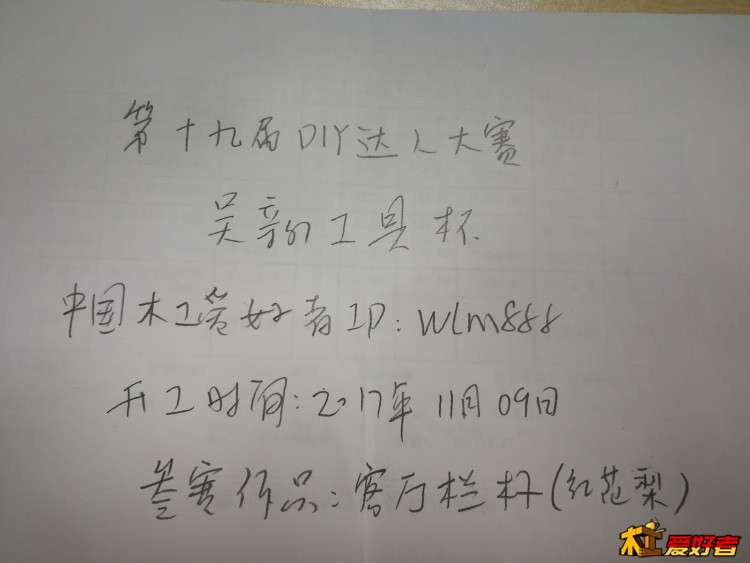 第十九届DIY达人大赛
吴新工具杯
中国木工爱好者ID:wlm888
开工时间:2017年11月09日
参赛作品:客厅栏杆(红花梨)
木工爱好者